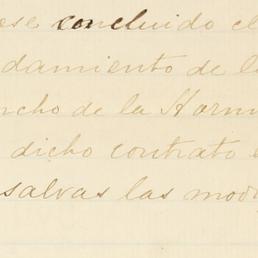 ese concluido el
damiento de l
ncho de la Horm
dicho contrato
salvas las mod